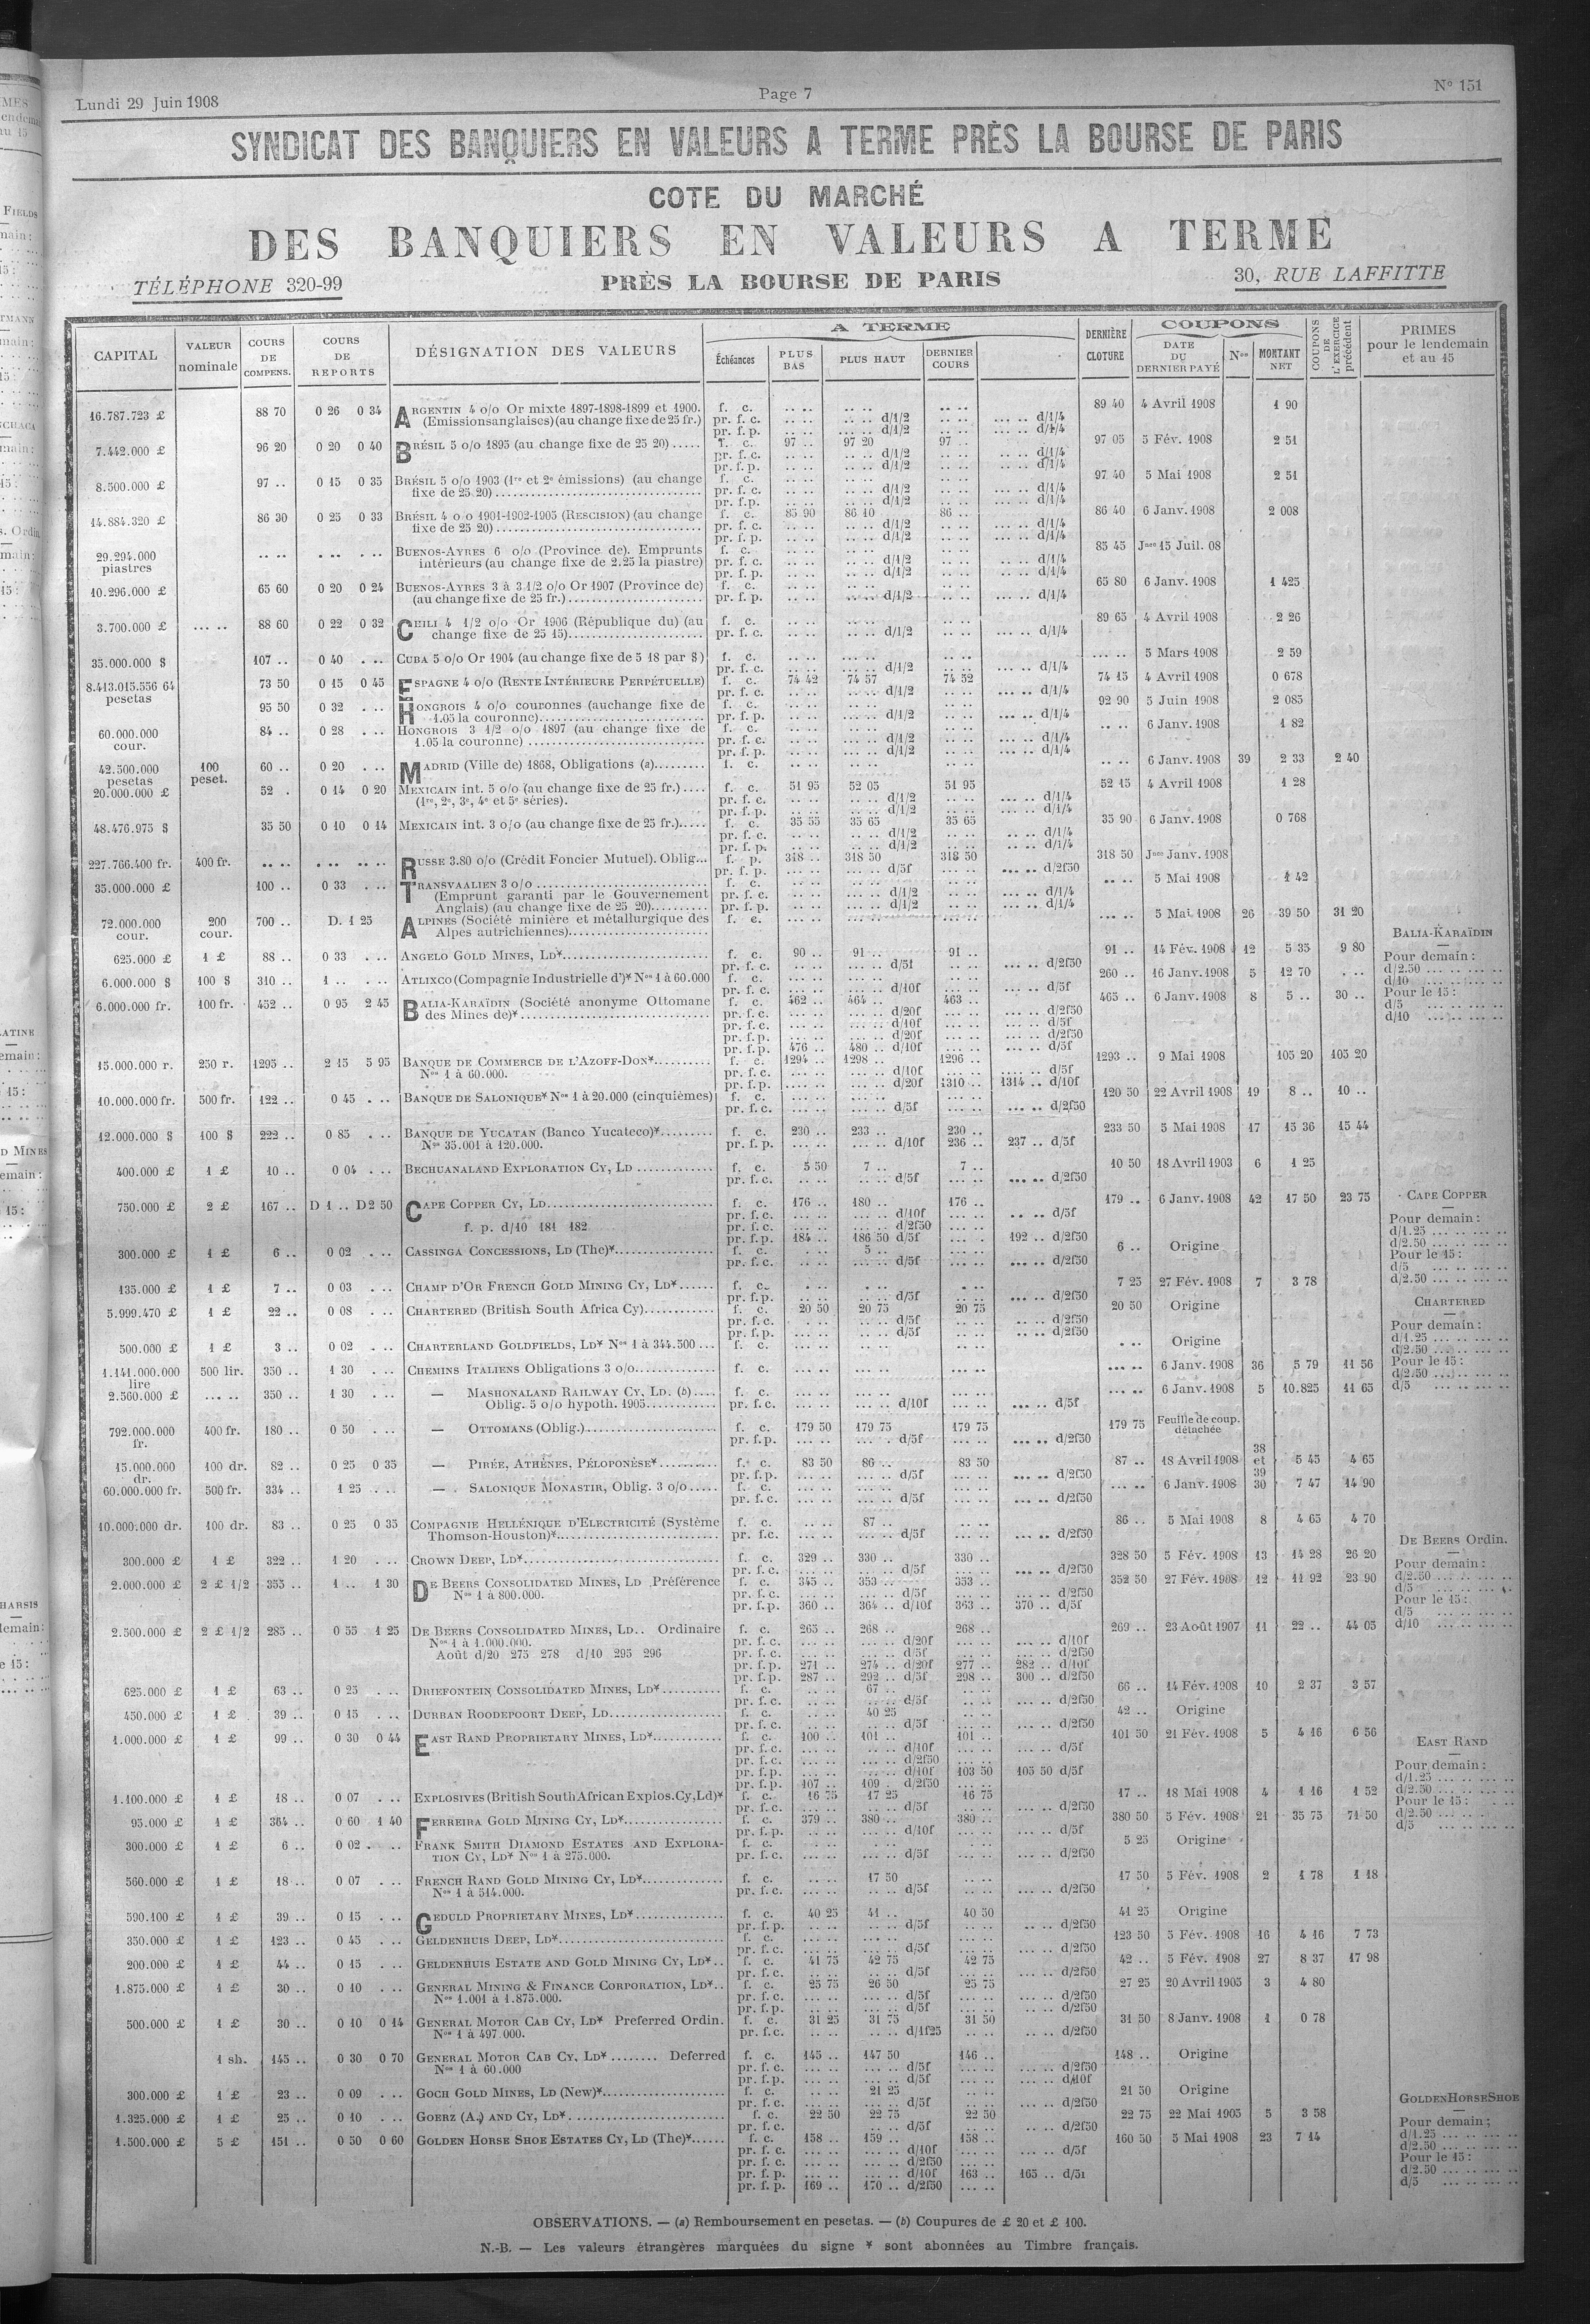 Lundi 29 Juin 1908
Page 7
N° 151
SYNDICAT DES BANQUIERS EN VALEURS A TERME PRÈS LA BOURSE DE PARIS
COTE DU MARCHÉ
DES BANQUIERS EN VALEURS A TERME
TÉLÉPHONE 320-99
PRÈS LA BOURSE DE PARIS
30, RUE LAFFITTE
CAPITAL VALEUR nominale COURS DE COMPENS. COURS DE REPORTS DÉSIGNATION DES VALEURS A TERME Échéances PLUS BAS PLUS HAUT DERNIER COURS DERNIÈRE CLOTURE COUPONS DATE DU DERNIER PAYÉ Nos MONTANT NET COUPONS DE L'EXERCICE précédent PRIMES pour le lendemain et au 15
16.787.723 £ 88 70 0 26 0 34 ARGENTIN 4 o/o Or mixte 1897-1898-1899 et 1900. f. c. 89 40 4 Avril 1908 1 90
(Emissions anglaises) (au change fixe de 25 fr.) pr. f. c. d/1/2 d/1/4
pr. f. p. d/1/2 d/1/4
7.442.000 £ 96 20 0 20 0 40 BRÉSIL 5 o/o 1895 (au change fixe de 25 20) f. c. 97 .. 97 20 97 .. 97 05 5 Fév. 1908 2 51
pr. f. c. d/1/2 d/1/4
pr. f. p. d/1/2 d/1/4
8.500.000 £ 97 .. 0 15 0 35 BRÉSIL 5 o/o 1903 (1re et 2e émissions) (au change f. c. 97 40 5 Mai 1908 2 51
fixe de 25.20) pr. f. c. d/1/2 d/1/4
pr. f. p. d/1/2 d/1/4
14.884.320 £ 86 30 0 25 0 33 BRÉSIL 4 o/o 1901-1902-1905 (RESCISION) (au change f. c. 85 90 86 10 86 .. 86 40 6 Janv. 1908 2 008
fixe de 25 20) pr. f. c. d/1/2 d/1/4
pr. f. p. d/1/2 d/1/4
29.294.000 piastres BUENOS-AYRES 6 o/o (Province de). Emprunts f. c. 85 45 Jnce 15 Juil. 08
intérieurs (au change fixe de 2.25 la piastre) pr. f. c. d/1/2 d/1/4
pr. f. p. d/1/2 d/1/4
10.296.000 £ 65 60 0 20 0 24 BUENOS-AYRES 3 à 3 1/2 o/o Or 1907 (Province de) f. c. 65 80 6 Janv. 1908 1 425
(au change fixe de 25 fr.) pr. f. p. d/1/2 d/1/4
3.700.000 £ 88 60 0 22 0 32 CHILI 4 1/2 o/o Or 1906 (République du) (au f. c. 89 65 4 Avril 1908 2 26
change fixe de 25 15) pr. f. c. d/1/2 d/1/4
35.000.000 $ 107 .. 0 40 CUBA 5 o/o Or 1904 (au change fixe de 5 18 par $) f. c. 5 Mars 1908 2 59
pr. f. c. d/1/2 d/1/4
8.413.015.556 64 pesetas 73 50 0 15 0 45 ESPAGNE 4 o/o (RENTE INTÉRIEURE PERPÉTUELLE) f. c. 74 42 74 57 74 52 74 15 4 Avril 1908 0 678
pr. f. c. d/1/2 d/1/4
95 50 0 32 HONGROIS 4 o/o couronnes (au change fixe de f. c. 92 90 5 Juin 1908 2 085
1.05 la couronne) pr. f. p. d/1/2 d/1/4
60.000.000 cour. 84 .. 0 28 HONGROIS 3 1/2 o/o 1897 (au change fixe de f. c. 6 Janv. 1908 1 82
1.05 la couronne) pr. f. c. d/1/2 d/1/4
pr. f. p. d/1/2 d/1/4
42.500.000 pesetas 100 peset. 60 .. 0 20 MADRID (Ville de) 1868, Obligations (a) f. c. 6 Janv. 1908 39 2 33 2 40
20.000.000 £ 52 . 0 14 0 20 MEXICAIN int. 5 o/o (au change fixe de 25 fr.) f. c. 51 95 52 05 51 95 52 15 4 Avril 1908 1 28
(1re, 2e, 3e, 4e et 5e séries). pr. f. c. d/1/2 d/1/4
pr. f. p. d/1/2 d/1/4
48.476.975 $ 35 50 0 10 0 14 MEXICAIN int. 3 o/o (au change fixe de 25 fr.) f. c. 35 55 35 65 35 65 35 90 6 Janv. 1908 0 768
pr. f. c. d/1/2 d/1/4
pr. f. p. d/1/2 d/1/4
227.766.400 fr. 400 fr. RUSSE 3.80 o/o (Crédit Foncier Mutuel). Oblig... f. p. 318 .. 318 50 318 50 318 50 Jnce Janv. 1908
pr. f. p. d/5f d/2f50
35.000.000 £ 100 .. 0 33 TRANSVAALIEN 3 o/o f. c. 5 Mai 1908 1 42
(Emprunt garanti par le Gouvernement pr. f. c. d/1/2 d/1/4
Anglais) (au change fixe de 25 20) pr. f. p. d/1/2 d/1/4
72.000.000 cour. 200 cour. 700 .. D. 1 25 ALPINES (Société minière et métallurgique des f. c. 5 Mai 1908 26 39 50 31 20
Alpes autrichiennes)
625.000 £ 1 £ 88 .. 0 33 ANGELO GOLD MINES, Ld* f. c. 90 .. 91 .. 91 .. 91 .. 14 Fév. 1908 12 5 35 9 80
pr. f. c. d/5f d/2f50
6.000.000 $ 100 $ 310 .. 1 .. ATLIXCO (Compagnie Industrielle d')* Nos 1 à 60.000 f. c. 260 .. 16 Janv. 1908 5 12 70
pr. f. c. d/10f d/5f
6.000.000 fr. 100 fr. 452 .. 0 95 2 45 BALIA-KARAÏDIN (Société anonyme Ottomane f. c. 462 .. 464 .. 463 .. 465 .. 6 Janv. 1908 8 5 .. 30 ..
des Mines de)* pr. f. c. d/20f d/2f50
pr. f. c. d/10f d/5f
pr. f. p. d/20f d/2f50
pr. f. p. 476 .. 480 .. d/10f d/5f
15.000.000 r. 250 r. 1295 .. 2 15 5 95 BANQUE DE COMMERCE DE L'AZOFF-DON* f. c. 1294 .. 1298 .. 1296 .. 1293 .. 9 Mai 1908 105 20 105 20
Nos 1 à 60.000. pr. f. c. d/10f d/5f
pr. f. p. d/20f 1310 .. 1314 .. d/10f
10.000.000 fr. 500 fr. 122 .. 0 45 BANQUE DE SALONIQUE* Nos 1 à 20.000 (cinquièmes) f. c. 120 50 22 Avril 1908 19 8 .. 10 ..
pr. f. c. d/5f d/2f50
12.000.000 $ 100 $ 222 .. 0 85 BANQUE DE YUCATAN (Banco Yucateco)* f. c. 230 .. 233 .. 230 .. 233 50 5 Mai 1908 17 15 36 15 44
Nos 35.001 à 120.000. pr. f. p. d/10f 236 .. 237 .. d/5f
400.000 £ 1 £ 10 .. 0 04 BECHUANALAND EXPLORATION CY, LD f. c. 5 50 7 .. 7 .. 10 50 18 Avril 1903 6 1 25
pr. f. c. d/5f d/2f50
750.000 £ 2 £ 167 .. D 1 .. D2 50 CAPE COPPER CY, LD f. c. 176 .. 180 .. 176 .. 179 .. 6 Janv. 1908 42 17 50 23 75
pr. f. c. d/10f d/5f
f. p. d/10 181 182 pr. f. c. d/2f50
pr. f. p. 184 .. 186 50 d/5f 192 .. d/2f50
300.000 £ 1 £ 6 .. 0 02 CASSINGA CONCESSIONS, LD (The)* f. c. 5 .. 6 .. Origine
pr. f. c. d/5f d/2f50
135.000 £ 1 £ 7 .. 0 03 CHAMP D'OR FRENCH GOLD MINING CY, LD* f. c. 7 25 27 Fév. 1908 7 3 78
pr. f. p. d/5f d/2f50
5.999.470 £ 1 £ 22 .. 0 08 CHARTERED (British South Africa Cy) f. c. 20 50 20 75 20 75 20 50 Origine
pr. f. c. d/5f d/2f50
pr. f. p. d/5f d/2f50
500.000 £ 1 £ 3 .. 0 02 CHARTERLAND GOLDFIELDS, LD* Nos 1 à 344.500 f. c. Origine
1.141.000.000 lire 500 lir. 350 .. 1 30 CHEMINS ITALIENS Obligations 3 o/o f. c. 6 Janv. 1908 36 5 79 11 56
2.560.000 £ 350 .. 1 30 — MASHONALAND RAILWAY CY, LD. (b) f. c. 6 Janv. 1908 5 10.825 11 65
Oblig. 5 o/o hypoth. 1905 pr. f. c. d/10f d/5f
792.000.000 fr. 400 fr. 180 .. 0 50 — OTTOMANS (Oblig.) f. c. 179 50 179 75 179 75 179 75 Feuille de coup. détachée
pr. f. p. d/5f d/2f50
15.000.000 dr. 100 dr. 82 .. 0 25 0 35 — PIRÉE, ATHÈNES, PÉLOPONÈSE* f. c. 83 50 86 .. 83 50 87 .. 18 Avril 1908 38 et 39 5 45 4 65
pr. f. p. d/5f d/2f50
60.000.000 fr. 500 fr. 334 .. 1 25 — SALONIQUE MONASTIR, Oblig. 3 o/o f. c. 6 Janv. 1908 30 7 47 14 90
pr. f. c. d/5f d/2f50
10.000.000 dr. 100 dr. 83 .. 0 25 0 35 COMPAGNIE HELLÉNIQUE D'ELECTRICITÉ (Système f. c. 87 .. 86 .. 5 Mai 1908 8 4 65 4 70
Thomson-Houston)* pr. f.c. d/5f d/2f50
300.000 £ 1 £ 322 .. 1 20 CROWN DEEP, LD* f. c. 329 .. 330 .. 330 .. 328 50 5 Fév. 1908 13 14 28 26 20
pr. f. c. d/5f d/2f50
2.000.000 £ 2 £ 1/2 355 .. 1 .. 1 30 DE BEERS CONSOLIDATED MINES, LD Préférence f. c. 345 .. 353 .. 353 .. 352 50 27 Fév. 1908 12 11 92 23 90
Nos 1 à 800.000. pr. f. c. d/5f d/2f50
pr. f.p. 360 .. 364 .. d/10f 363 .. 370 .. d/5f
2.500.000 £ 2 £ 1/2 285 .. 0 55 1 25 DE BEERS CONSOLIDATED MINES, LD.. Ordinaire f. c. 265 .. 268 .. 268 .. 269 .. 23 Août 1907 11 22 .. 44 05
Nos 1 à 1.000.000. pr. f. c. d/20f d/10f
Août d/20 275 278 d/10 295 296 pr. f. c. d/5f d/2f50
pr. f. p. 271 .. 274 .. d/20f 277 .. 282 .. d/10f
pr. f. p. 287 .. 292 .. d/5f 298 .. 300 .. d/2f50
625.000 £ 1 £ 63 .. 0 25 DRIEFONTEIN CONSOLIDATED MINES, LD* f. c. 67 .. 66 .. 14 Fév. 1908 10 2 37 3 57
pr. f. c. d/5f d/2f50
450.000 £ 1 £ 39 .. 0 15 DURBAN ROODEPOORT DEEP, LD f. c. 40 25 42 .. Origine
pr. f. c. d/5f d/2f50
1.000.000 £ 1 £ 99 .. 0 30 0 44 EAST RAND PROPRIETARY MINES, LD* f. c. 100 .. 101 .. 101 .. 101 50 21 Fév. 1908 5 4 16 6 56
pr. f. c. d/10f d/5f
pr. f. c. d/2f50
pr. f. p. d/10f 103 50 105 50 d/5f
pr. f. p. 107 .. 109 . d/2f50
1.100.000 £ 1 £ 18 .. 0 07 EXPLOSIVES (British South African Explos. Cy, Ld)* f. c. 16 75 17 25 16 75 17 .. 18 Mai 1908 4 1 16 1 52
pr. f. c. d/5f d/2f50
95.000 £ 1 £ 364 .. 0 60 1 40 FERREIRA GOLD MINING CY, LD* f. c. 379 .. 380 .. 380 .. 380 50 5 Fév. 1908 21 35 75 71 50
pr. f. p. d/10f d/5f
300.000 £ 1 £ 6 .. 0 02 FRANK SMITH DIAMOND ESTATES AND EXPLORA- f. c. 5 25 Origine
TION CY, LD* Nos 1 à 275.000. pr. f. c. d/5f d/2f50
560.000 £ 1 £ 18 .. 0 07 FRENCH RAND GOLD MINING CY, LD* f. c. 17 50 17 50 5 Fév. 1908 2 1 78 1 18
Nos 1 à 514.000. pr. f. c. d/5f d/2f50
590.100 £ 1 £ 39 .. 0 15 GEDULD PROPRIETARY MINES, LD* f. c. 40 25 41 .. 40 50 41 25 Origine
pr. f. p. d/5f d/2f50
350.000 £ 1 £ 123 .. 0 45 GELDENHUIS DEEP, LD* f. c. 123 50 5 Fév. 1908 16 4 16 7 73
pr. f. c. d/5f d/2f50
200.000 £ 1 £ 44 .. 0 15 GELDENHUIS ESTATE AND GOLD MINING CY, LD* f. c. 41 75 42 75 42 75 42 .. 5 Fév. 1908 27 8 37 17 98
pr. f. c. d/5f d/2f50
1.875.000 £ 1 £ 30 .. 0 10 GENERAL MINING & FINANCE CORPORATION, LD* f. c. 25 75 26 50 25 75 27 25 20 Avril 1905 3 4 80
Nos 1.001 à 1.875.000. pr. f. c. d/5f d/2f50
pr. f. p. d/5f d/2f50
500.000 £ 1 £ 30 .. 0 10 0 14 GENERAL MOTOR CAB CY, LD* Preferred Ordin. f. c. 31 25 31 75 31 50 31 50 8 Janv. 1908 1 0 78
Nos 1 à 497.000. pr. f.c. d/1f25 d/2f50
1 sh. 145 .. 0 30 0 70 GENERAL MOTOR CAB CY, LD* Deferred f. c. 145 .. 147 50 146 .. 148 .. Origine
Nos 1 à 60.000 pr. f. c. d/5f d/2f50
pr. f. p. d/5f d/10f
300.000 £ 1 £ 23 .. 0 09 GOCH GOLD MINES, LD (New)* f. c. 21 25 21 50 Origine
pr. f. c. d/5f d/2f50
1.325.000 £ 1 £ 25 .. 0 10 GOERZ (A.) AND CY, LD* f. c. 22 50 22 75 22 50 22 75 22 Mai 1905 5 3 58
pr. f. c. d/5f d/2f50
1.500.000 £ 5 £ 151 .. 0 50 0 60 GOLDEN HORSE SHOE ESTATES CY, LD (The)* f. c. 158 .. 159 .. 158 .. 160 50 5 Mai 1908 23 7 14
pr. f. c. d/10f d/5f
pr. f. c. d/2f50
pr. f. p. d/10f 163 .. 165 .. d/5f
pr. f. p. 169 .. 170 .. d/2f50
BALIA-KARAÏDIN
Pour demain :
d/2.50
d/10
Pour le 15 :
d/5
d/10
CAPE COPPER
Pour demain :
d/1.25
d/2.50
Pour le 15 :
d/5
d/2.50
CHARTERED
Pour demain :
d/1.25
d/2.50
Pour le 15 :
d/2.50
d/5
DE BEERS Ordin.
Pour demain :
d/2.50
d/5
Pour le 15 :
d/5
d/10
EAST RAND
Pour demain :
d/1.25
d/2.50
Pour le 15 :
d/2.50
d/5
GOLDEN HORSE SHOE
Pour demain :
d/1.25
d/2.50
Pour le 15 :
d/2.50
d/5
OBSERVATIONS. — (a) Remboursement en pesetas. — (b) Coupures de £ 20 et £ 100.
N.-B. — Les valeurs étrangères marquées du signe * sont abonnées au Timbre français.